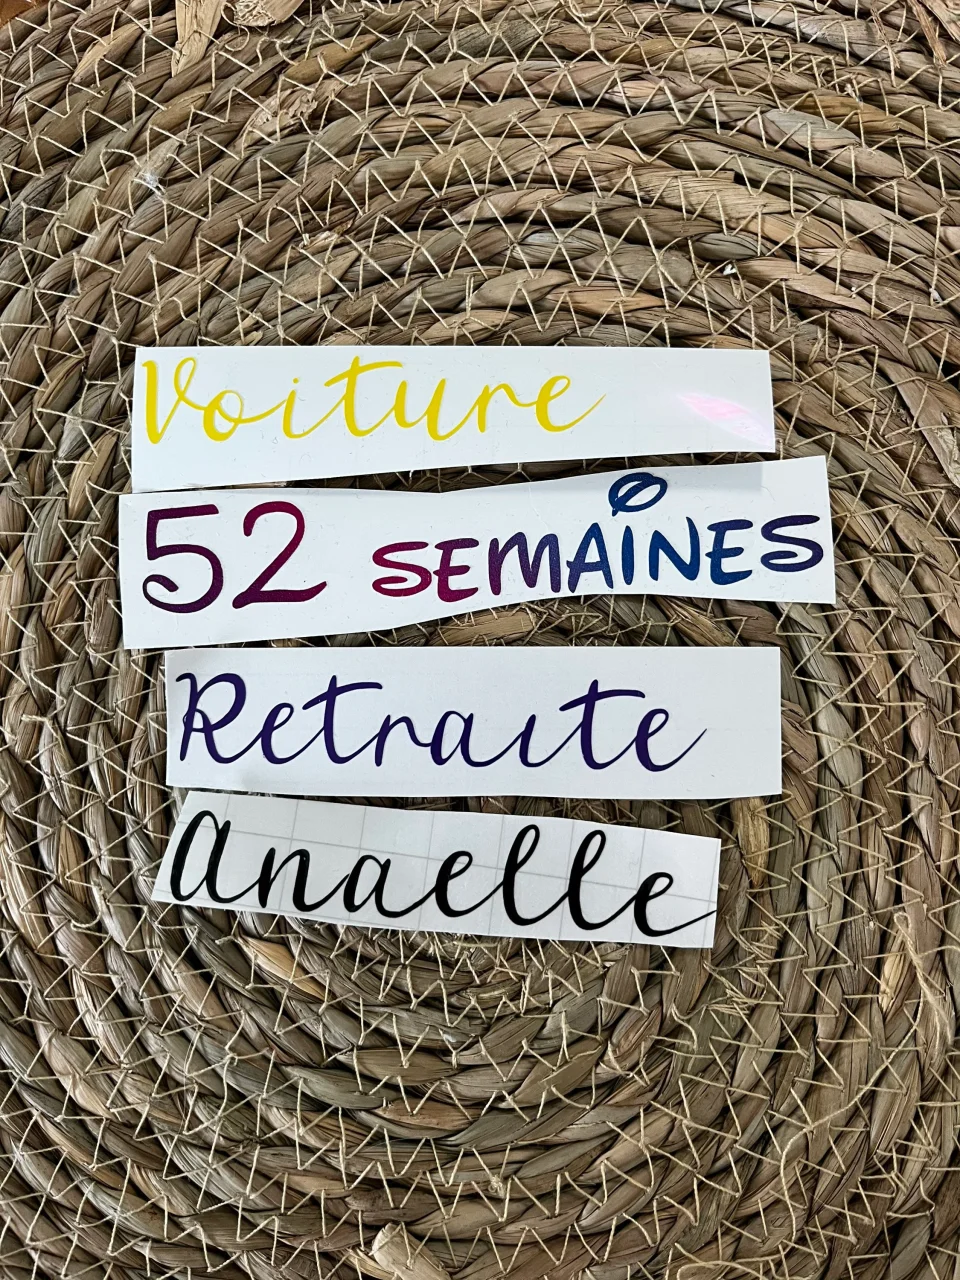 Voiture
52 SEMAINES
Retraite
Anaelle